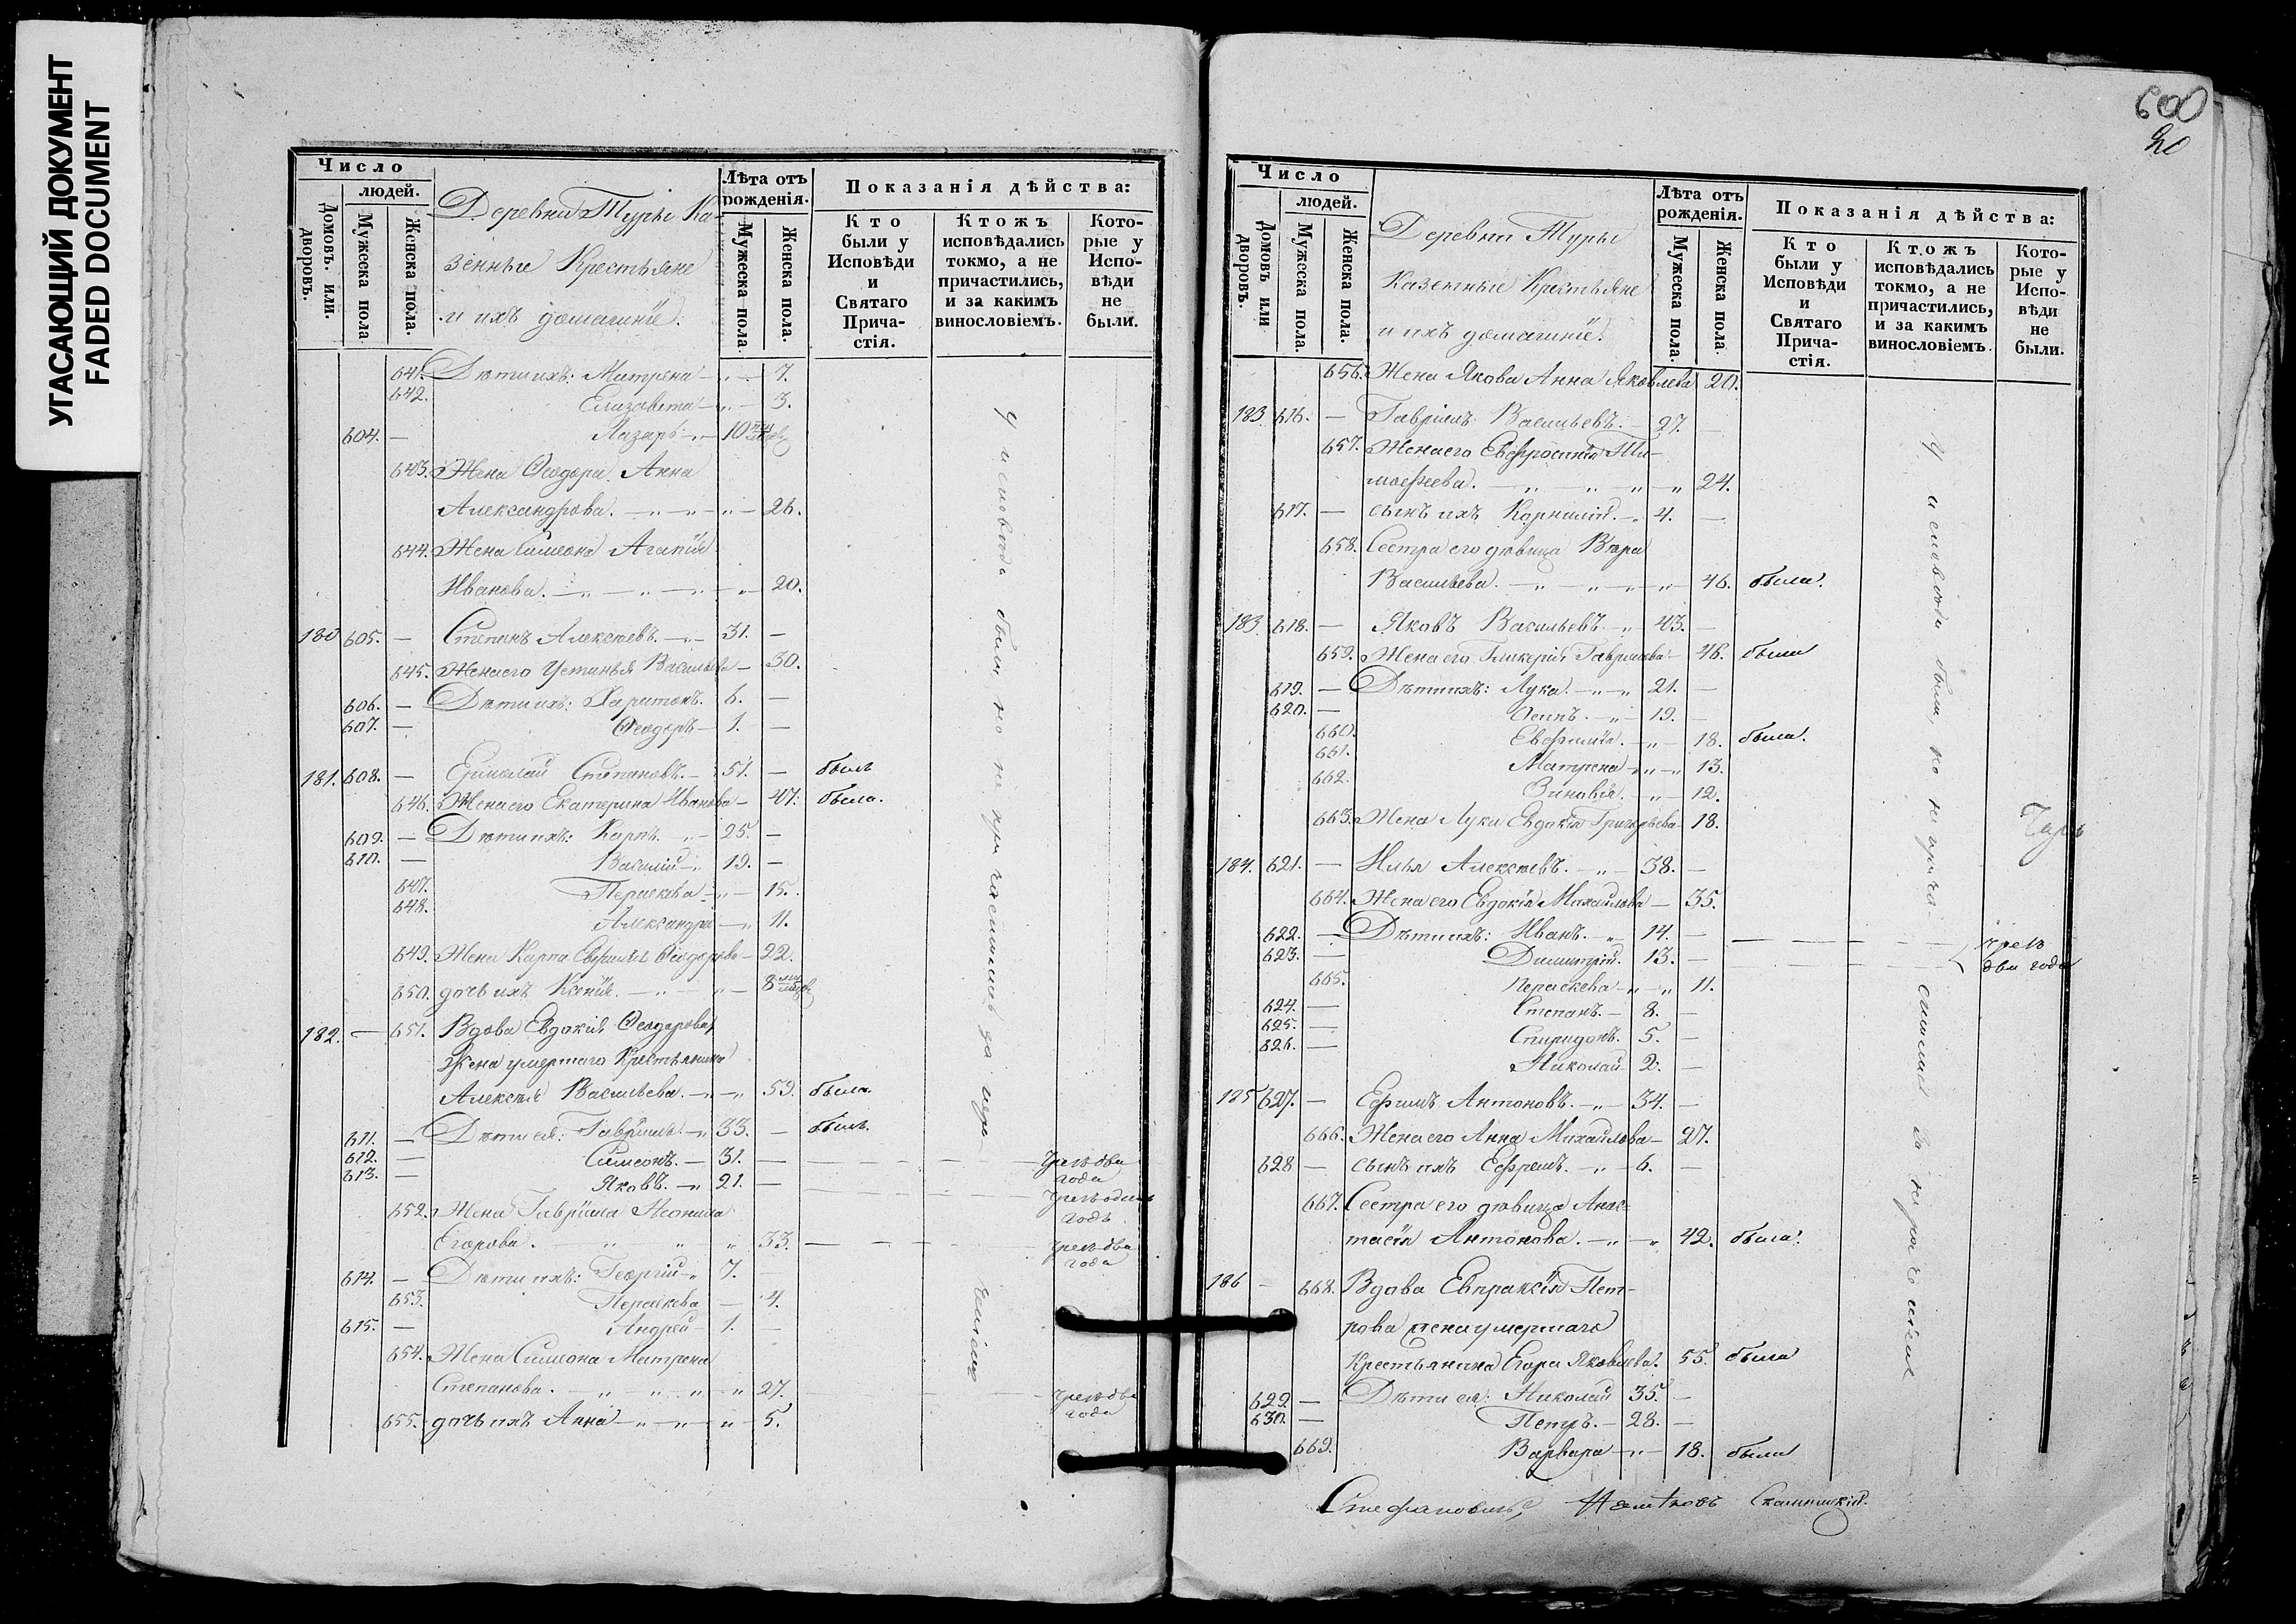 УГАСАЮЩИЙ ДОКУМЕНТ
FADED DOCUMENT
Число
людей.
Домовъ или дворовъ.
Мужеска пола
Женска пола.
Деревни Туры Ка-
зенные Крестьяне
и ихъ домашніе.
Лѣта отъ рожденія.
Мужеска пола.
Женска пола.
Показанія дѣйства:
Кто были у Исповѣди и Святаго Прича-стія.
Ктожъ исповѣдались токмо, а не причастились, и за какимъ винословіемъ.
Кото-рые у Испо-вѣди не были.
641. Дѣти ихъ: Матрена 7.
642. Елизавета 3.
604. — Лазарь 10
643. Жена Ѳеодора Анна
Александрова. 26.
644. Жена Симеона Агапія
Иванова. 20.
180 605. — Степанъ Алексѣевъ. 31. —
645. Жена его Устинья Васильева 30.
606. — Дѣти ихъ: Харитонъ. 6. —
607. — Ѳеодоръ 1. —
181. 608. — Ермолай Степановъ. 51. — былъ
646. Жена его Екатерина Иванова 47. была.
609. — Дѣти ихъ: Карпъ 25. —
610. — Василій 19. —
647. Параскева 15.
648. Александра 11.
649. Жена Карпа Евфимія Ѳеодорова 22.
650. дочь ихъ Ксенія. 8
182. — 651. Вдова Евдокія Ѳеодорова,
жена умершаго Крестьянина
Алексѣя Васильева. 53. была.
611. — Дѣти ея: Гавріилъ 33. — былъ.
612. — Симеонъ. 31. — чрезъ два года
613. — Яковъ. 21. — чрезъ одинъ годъ
652. Жена Гавріила
Егорова. 33. — чрезъ два года
614. — Дѣти ихъ: Георгій 7.
653. Параскева 4.
615. — Андрей 1. —
654. Жена Симеона Матрена
Степанова. 27. чрезъ два года
655. дочь ихъ Анна 5.
У исповѣди были, но не причастились за
600
Число
людей.
Домовъ или дворовъ.
Мужеска пола.
Женска пола.
Деревни Туры
Казенные Крестьяне
и ихъ домашніе.
Лѣта отъ рожденія.
Мужеска пола.
Женска пола.
Показанія дѣйства:
Кто были у Исповѣди и Святаго Прича-стія.
Ктожъ исповѣдались токмо, а не причастились, и за какимъ винословіемъ.
Кото-рые у Испо-вѣди не были.
656. Жена Якова Анна Яковлева 20.
183 616. — Гавріилъ Васильевъ. 27. —
657. Жена его Евфросинія Ти-
моѳеева. 24.
617. — сынъ ихъ Корнилій. 4. —
658. Сестра его дѣвица Вѣра
Васильева. 46. была.
183 618. — Яковъ Васильевъ 43. —
659. Жена его Гликерія Гавриилова 46. была
619. — Дѣти ихъ: Лука. 21. —
620. — Осипъ. 19. —
660. Евфимія. 18. была.
661. Матрена 13.
662. Зиновія. 12.
663. Жена Луки Евдокія Григорьева 18.
184. 621. — Илья Алексѣевъ. 38. —
664. Жена его Евдокія Михайлова 35.
622. — Дѣти ихъ: Иванъ. 14. —
623. — Димитрій. 13. —
чрезъ два года
665. Параскева 11.
624. — Степанъ. 8. —
625. — Спиридонъ. 5. —
626. — Николай 2. —
185 627. — Ефимъ Антоновъ. 34. —
666. Жена его Анна Михайлова 27.
628 — сынъ ихъ Ефремъ. 6. —
667. Сестра его дѣвица Анас-
тасія Антонова. 42. была.
186 — 668. Вдова Евпраксія Пет-
рова жена умершаго
Крестьянина Егора Яковлева. 55. была
629. — Дѣти ея: Николай 35. —
630. — Петръ. 28. —
669. Варвара 18. была
У исповѣди были, но не прича-
стились за нераченіемъ